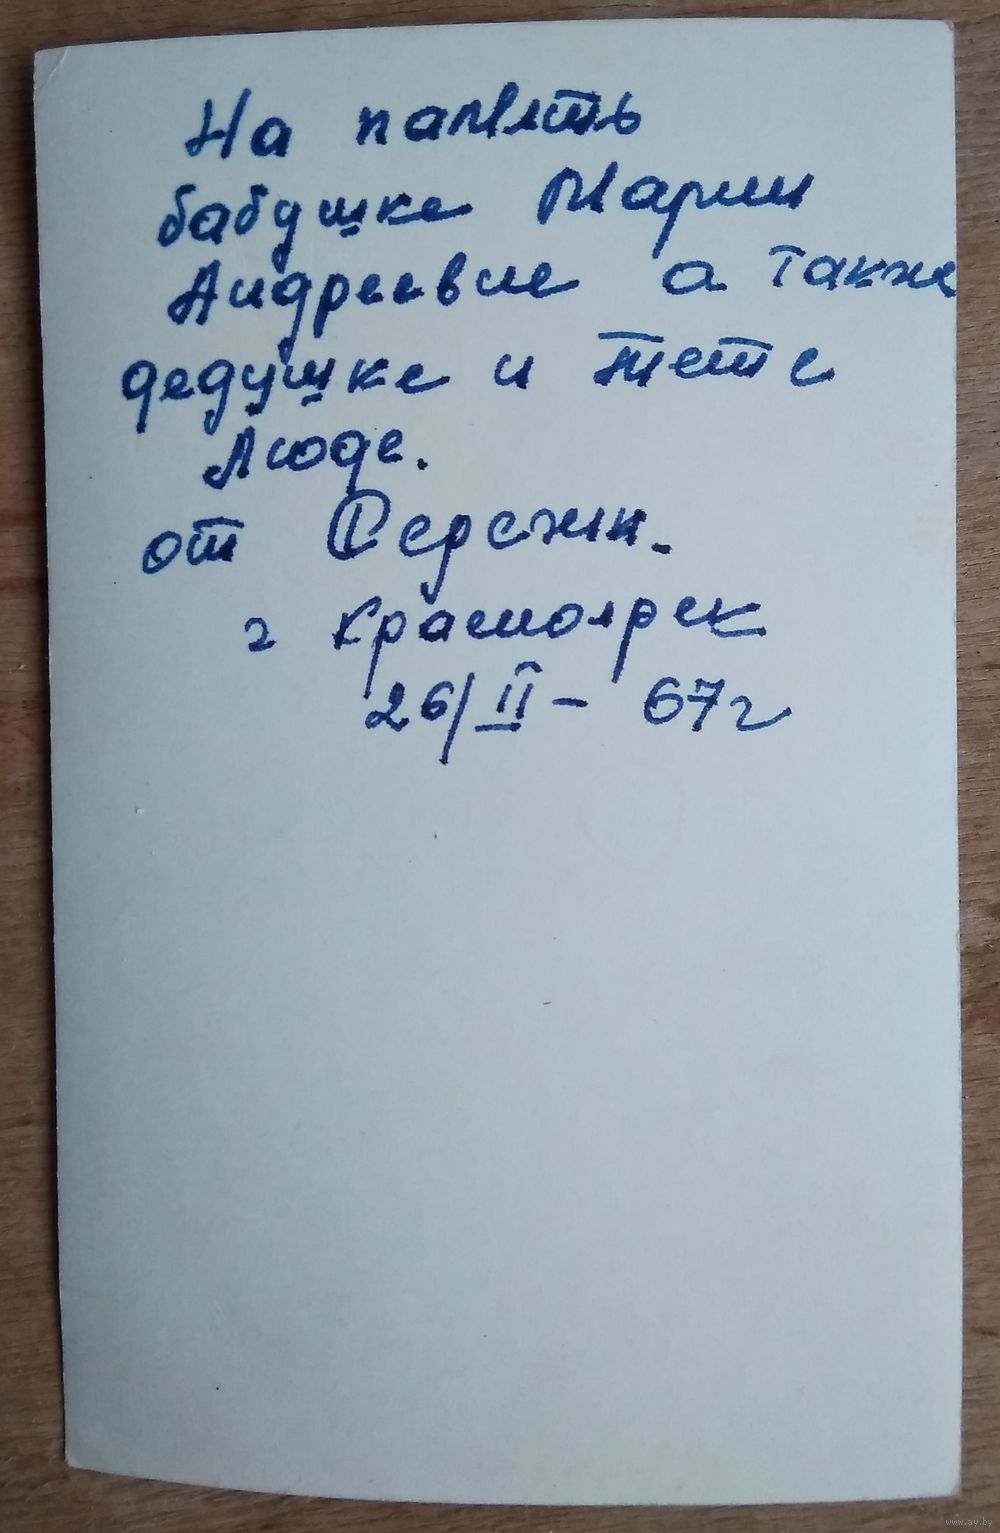 На память
бабушке Марии
Андреевне а также
дедушке и тете
Люде.
от Сережи.
г Красноярск
26/II - 67г
www.ay.by